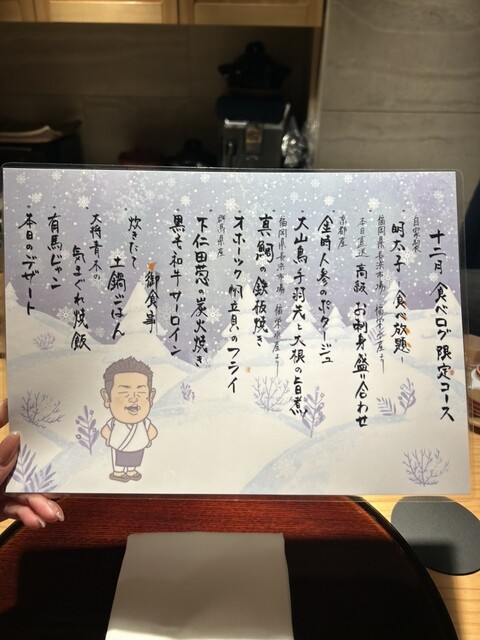 十二月 食べログ限定コース
自家製
明太子 -食べ放題-
福岡県長浜市場
本日直送
お刺身盛り合わせ
京都産
金時人参のポタージュ
大山鳥手羽先と大根の旨煮
福岡県長浜市場
より
真鯛の鉄板焼き
オホーツク帆立貝のフライ
群馬県産
下仁田葱の炭火焼き
黒毛和牛サーロイン
御食事
炊きたて
土鍋ごはん
大将青木の
気まぐれ焼飯
有馬ジャン
本日のデザート